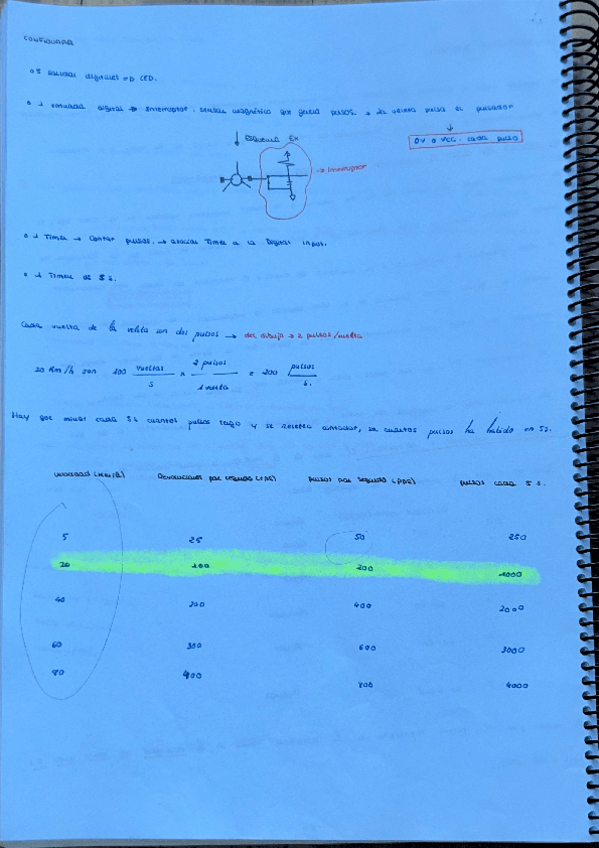 CONTINUARA
5 salidas digitales → LED.
1 entrada digital → Interruptor. sensor magnético que genera pulsos. → la veleta pulsa el pulsador
0V o VCC. cada pulso
Esquema
→ Interruptor
1 Timer → contar pulsos. → asociar Timer a la Digital input.
1 Timer de 5 s.
Cada vuelta de la veleta son dos pulsos → del dibujo → 2 pulsos/vuelta
20 Km/h son 100 vueltas/s × 2 pulsos/1 vuelta = 200 pulsos/s.
Hay que mirar cada 5s cuantos pulsos tengo y se resetea contador, se cuantos pulsos ha habido en 5s.
Velocidad (Km/h) Revoluciones por segundo (rps) pulsos por segundo (pps) pulsos cada 5 s.
5 25 50 250
20 100 200 1000
40 200 400 2000
60 300 600 3000
80 400 800 4000